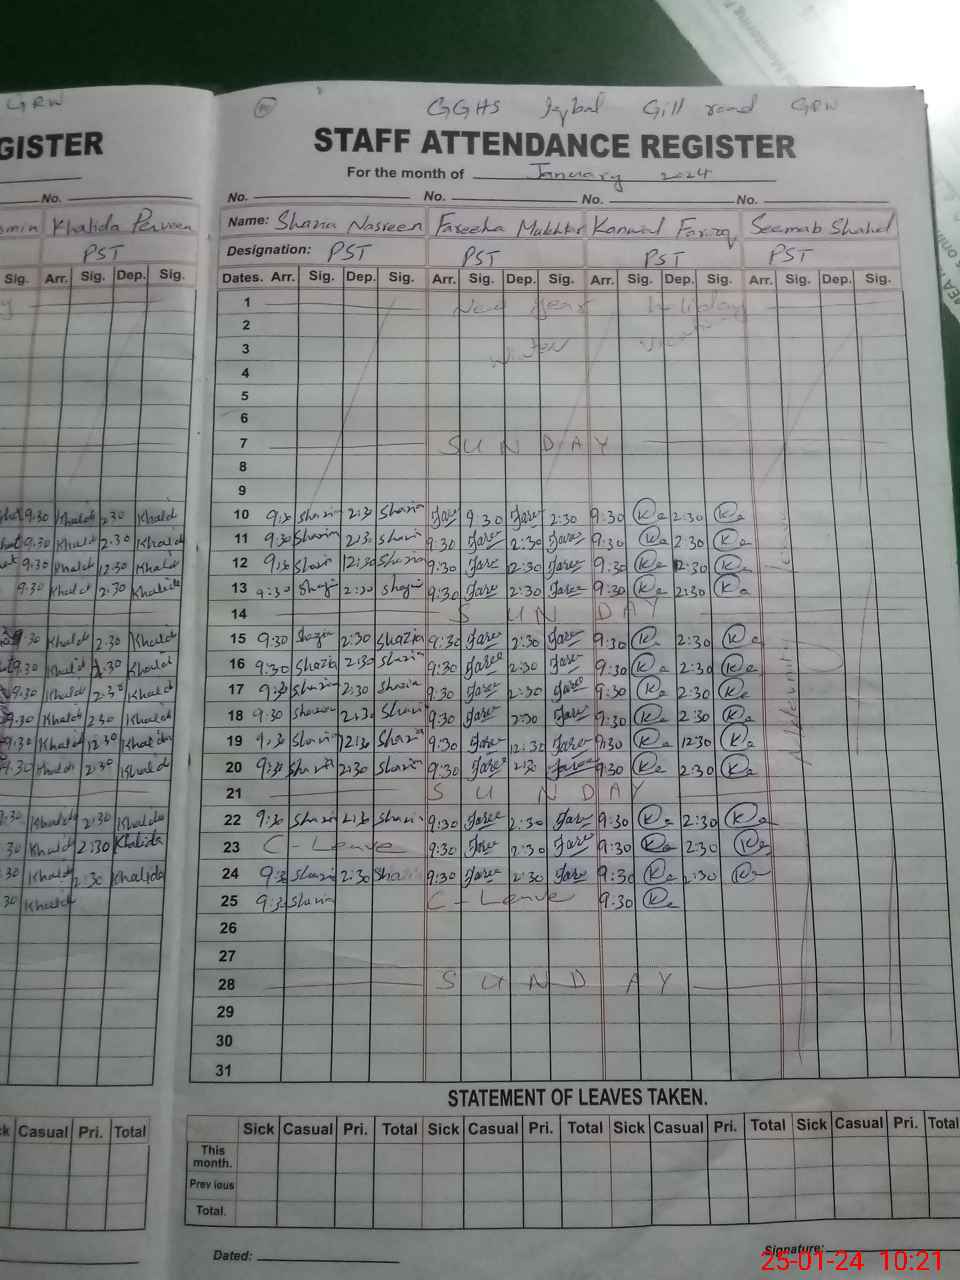 GRW
GGHS Iqbal Gill road GRW
GISTER
STAFF ATTENDANCE REGISTER
For the month of January 2024
No. No. No. No. No.
Khalida Perveen Name: Shazia Nasreen Fareeha Mukhtar Kanwal Farooq Seemab Shahid
PST Designation: PST PST PST PST
Sig. Arr. Sig. Dep. Sig. Dates. Arr. Sig. Dep. Sig. Arr. Sig. Dep. Sig. Arr. Sig. Dep. Sig. Arr. Sig. Dep. Sig.
1 New Year holiday
2
3 Winter
4
5
6
7 SUNDAY
8
9
9:30 Khalid 2:30 Khalid 10 9:30 Shazia 2:30 Shazia Faree 9:30 Faree 2:30 9:30 Ka 2:30 Ka
9:30 Khalid 2:30 Khalid 11 9:30 Shazia 2:30 Shazia 9:30 Faree 2:30 Faree 9:30 Ka 2:30 Ka
9:30 Khalid 12:30 Khalid 12 9:30 Shazia 12:30 Shazia 9:30 Faree 12:30 Faree 9:30 Ka 12:30 Ka
9:30 Khalid 2:30 Khalida 13 9:30 Shazia 2:30 Shazia 9:30 Faree 2:30 Faree 9:30 Ka 2:30 Ka
14 SUNDAY
9:30 Khalid 2:30 Khalid 15 9:30 Shazia 2:30 Shazia 9:30 Faree 2:30 Faree 9:30 Ka 2:30 Ka
9:30 Khalid 2:30 Khalid 16 9:30 Shazia 2:30 Shazia 9:30 Faree 2:30 Faree 9:30 Ka 2:30 Ka
9:30 Khalid 2:30 Khalid 17 9:30 Shazia 2:30 Shazia 9:30 Faree 2:30 Faree 9:30 Ka 2:30 Ka
9:30 Khalid 2:30 Khalid 18 9:30 Shazia 2:30 Shazia 9:30 Faree 2:30 Faree 9:30 Ka 2:30 Ka
9:30 Khalid 12:30 Khalida 19 9:30 Shazia 12:30 Shazia 9:30 Faree 12:30 Faree 9:30 Ka 12:30 Ka
9:30 Khalid 2:30 Khalid 20 9:30 Shazia 2:30 Shazia 9:30 Faree 2:30 Faree 9:30 Ka 2:30 Ka
21 SUNDAY
:30 Khalida 2:30 Khalida 22 9:30 Shazia 2:30 Shazia 9:30 Faree 2:30 Faree 9:30 Ka 2:30 Ka
30 Khalid 2:30 Khalida 23 C-Leave 9:30 Faree 2:30 Faree 9:30 Ka 2:30 Ka
30 Khalid 2:30 Khalida 24 9:30 Shazia 2:30 Shazia 9:30 Faree 2:30 Faree 9:30 Ka 2:30 Ka
30 Khalid 25 9:30 Shazia C-Leave 9:30 Ka
26
27
28 SUNDAY
29
30
31
STATEMENT OF LEAVES TAKEN.
ck Casual Pri. Total Sick Casual Pri. Total Sick Casual Pri. Total Sick Casual Pri. Total Sick Casual Pri. Total
This month.
Previous
Total.
Dated: Signature:
25-01-24 10:21